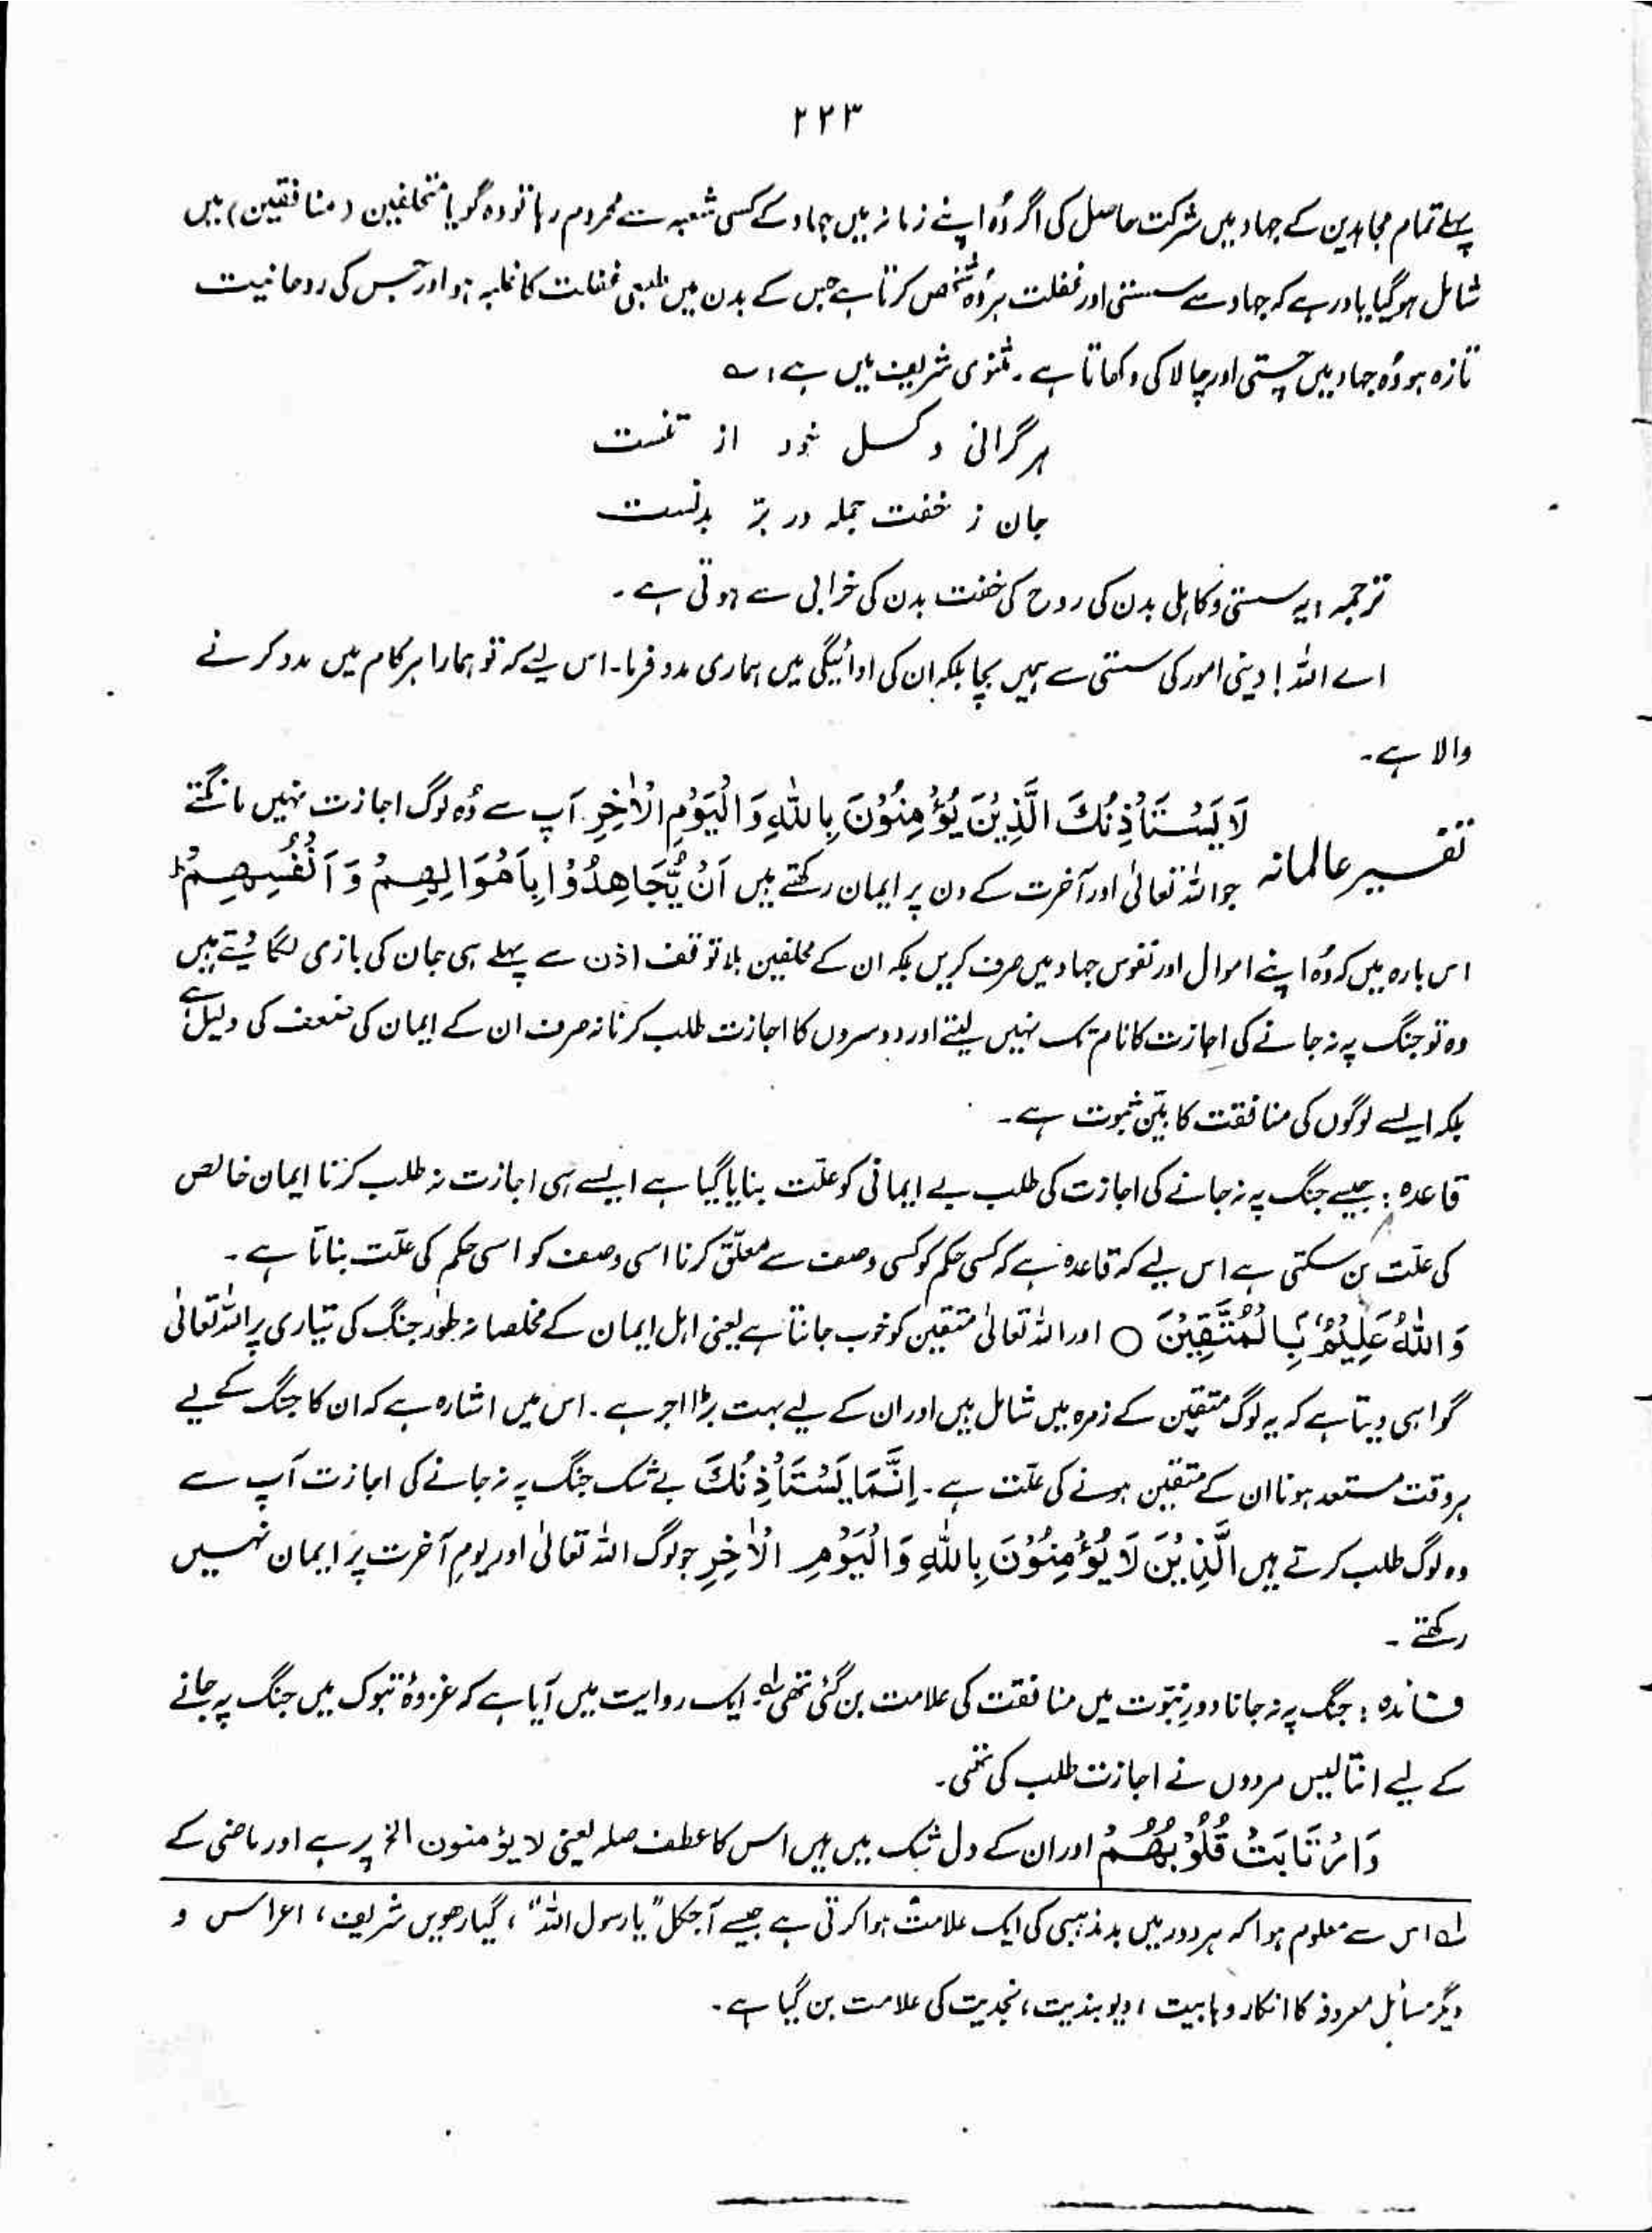 ۲۲۳
پہلے تمام مجاہدین کے جہاد میں شرکت حاصل کی اگر وُہ اپنے زمانہ میں جہاد کے کسی شعبہ سے محروم رہا تو وہ گویا متخلفین (منافقین) میں
شامل ہو گیا یاد رہے کہ جہاد سے سستی اور غفلت ہر وُہ شخص کرتا ہے جس کے بدن میں طبعی غفلت کا غلبہ ہو اور جس کی روحانیت
تازہ ہو وُہ جہاد میں چستی اور چالاکی دکھاتا ہے۔ مثنوی شریف میں ہے؛ ؎
ہر گرانی و کسل خود از تنست
جان ز خفت جملہ در پرّ بدنست
ترجمہ: یہ سستی و کاہلی بدن کی روح کی خفت بدن کی خرابی سے ہوتی ہے۔
اے اللہ! دینی امور کی سستی سے ہمیں بچا بلکہ ان کی ادائیگی میں ہماری مدد فرما۔ اس لیے کہ تو ہمارا ہر کام میں مدد کرنے
والا ہے۔
تفسیر عالمانہ لَا يَسْتَأْذِنُكَ الَّذِيْنَ يُؤْمِنُوْنَ بِاللّٰهِ وَالْيَوْمِ الْاٰخِرِ آپ سے وُہ لوگ اجازت نہیں مانگتے
جو اللہ تعالیٰ اور آخرت کے دن پر ایمان رکھتے ہیں اَنْ يُّجَاهِدُوْا بِاَمْوَالِهِمْ وَاَنْفُسِهِمْ ؕ
اس بارہ میں کہ وُہ اپنے اموال اور نفوس جہاد میں صرف کریں بلکہ ان کے مخلصین بلا توقف اذن سے پہلے ہی جان کی بازی لگا دیتے ہیں
وہ تو جنگ پہ نہ جانے کی اجازت کا نام تک نہیں لیتے اور دوسروں کا اجازت طلب کرنا نہ صرف ان کے ایمان کی ضعف کی دلیل ہے
بلکہ ایسے لوگوں کی منافقت کا بیّن ثبوت ہے۔
قاعدہ: جیسے جنگ پہ نہ جانے کی اجازت کی طلب بے ایمانی کو علّت بنایا گیا ہے ایسے ہی اجازت نہ طلب کرنا ایمان خالص
کی علّت بن سکتی ہے اس لیے کہ قاعدہ ہے کہ کسی حکم کو کسی وصف سے معلّق کرنا اسی وصف کو اسی حکم کی علّت بناتا ہے۔
وَاللّٰهُ عَلِيْمٌۢ بِالْمُتَّقِيْنَ ○ اور اللہ تعالیٰ متقین کو خوب جانتا ہے یعنی اہل ایمان کے مخلصانہ طور جنگ کی تیاری پر اللہ تعالیٰ
گواہی دیتا ہے کہ یہ لوگ متقین کے زمرہ میں شامل ہیں اور ان کے لیے بہت بڑا اجر ہے۔ اس میں اشارہ ہے کہ ان کا جنگ کے لیے
ہر وقت مستعد ہونا ان کے متقین ہونے کی علّت ہے۔ اِنَّمَا يَسْتَأْذِنُكَ بے شک جنگ پہ نہ جانے کی اجازت آپ سے
وہ لوگ طلب کرتے ہیں الَّذِيْنَ لَا يُؤْمِنُوْنَ بِاللّٰهِ وَالْيَوْمِ الْاٰخِرِ جو لوگ اللہ تعالیٰ اور یومِ آخرت پر ایمان نہیں
رکھتے۔
فائدہ: جنگ پہ نہ جانا دورِ نبوّت میں منافقت کی علامت بن گئی تھی لہ۔ ایک روایت میں آیا ہے کہ غزوۂ تبوک میں جنگ پہ جانے
کے لیے انتالیس مردوں نے اجازت طلب کی تھی۔
وَارْتَابَتْ قُلُوْبُهُمْ اور ان کے دل شک میں ہیں اس کا عطف صلہ یعنی لا یؤمنون الخ پر ہے اور ماضی کے
لہ اس سے معلوم ہوا کہ ہر دور میں بدمذہبی کی ایک علامت ہوا کرتی ہے جیسے آجکل "یا رسول اللہ"، گیارھویں شریف، اعراس و
دیگر مسائل معروفہ کا انکار وہابیت، دیوبندیت، نجدیت کی علامت بن گیا ہے۔